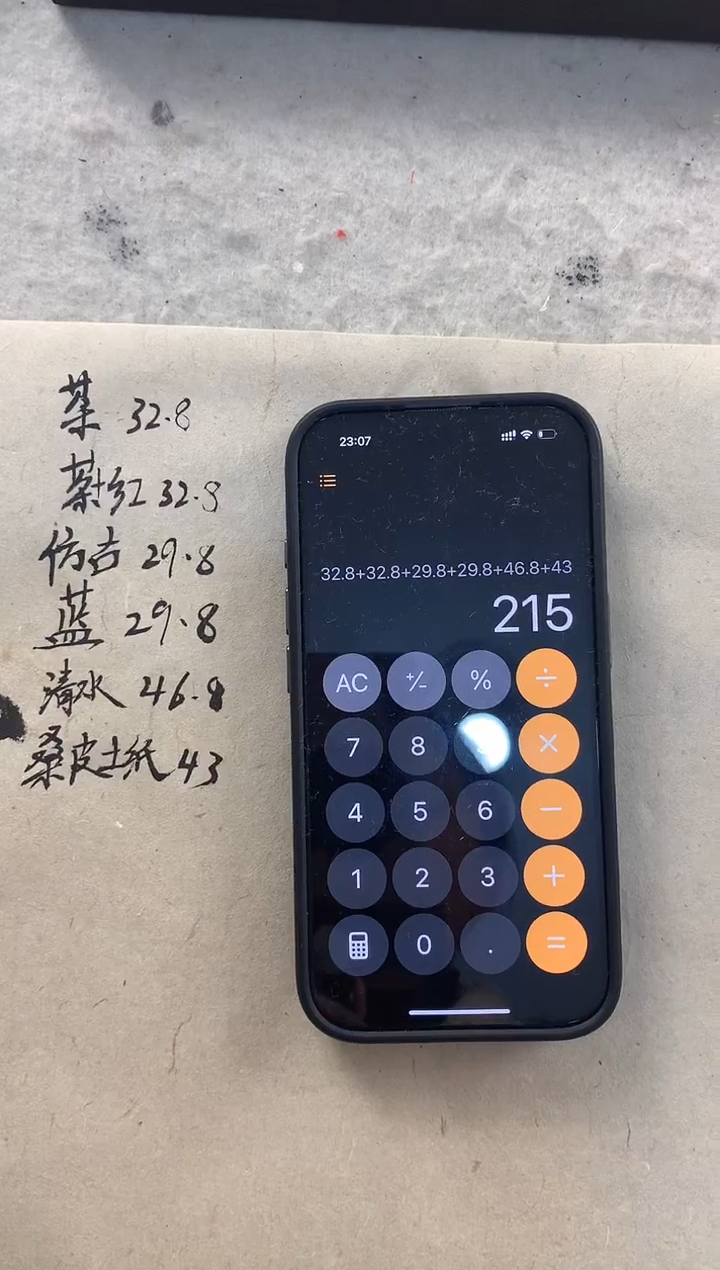 某 32.8
某红 32.8
仿古 29.8
蓝 29.8
清水 46.8
桑皮土纸 43
23:07
32.8+32.8+29.8+29.8+46.8+43
215
AC +/- % ÷
7 8 ×
4 5 6 −
1 2 3 +
0 . =